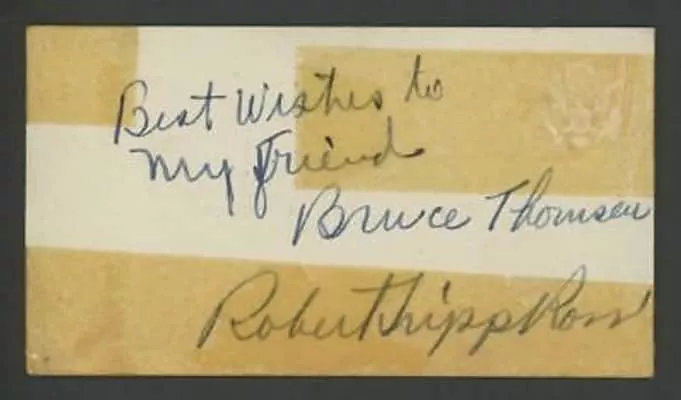 Best Wishes to
my friend
Bruce Thomsen
Robert Tripp Ross